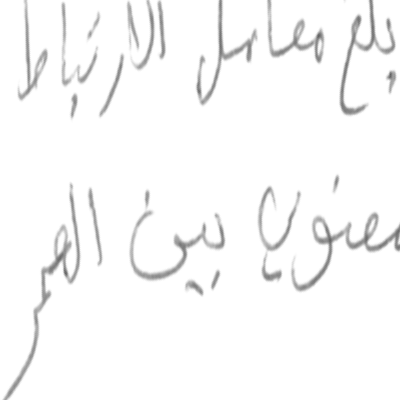 بلغ معامل الارتباط
معنويا بين العمر